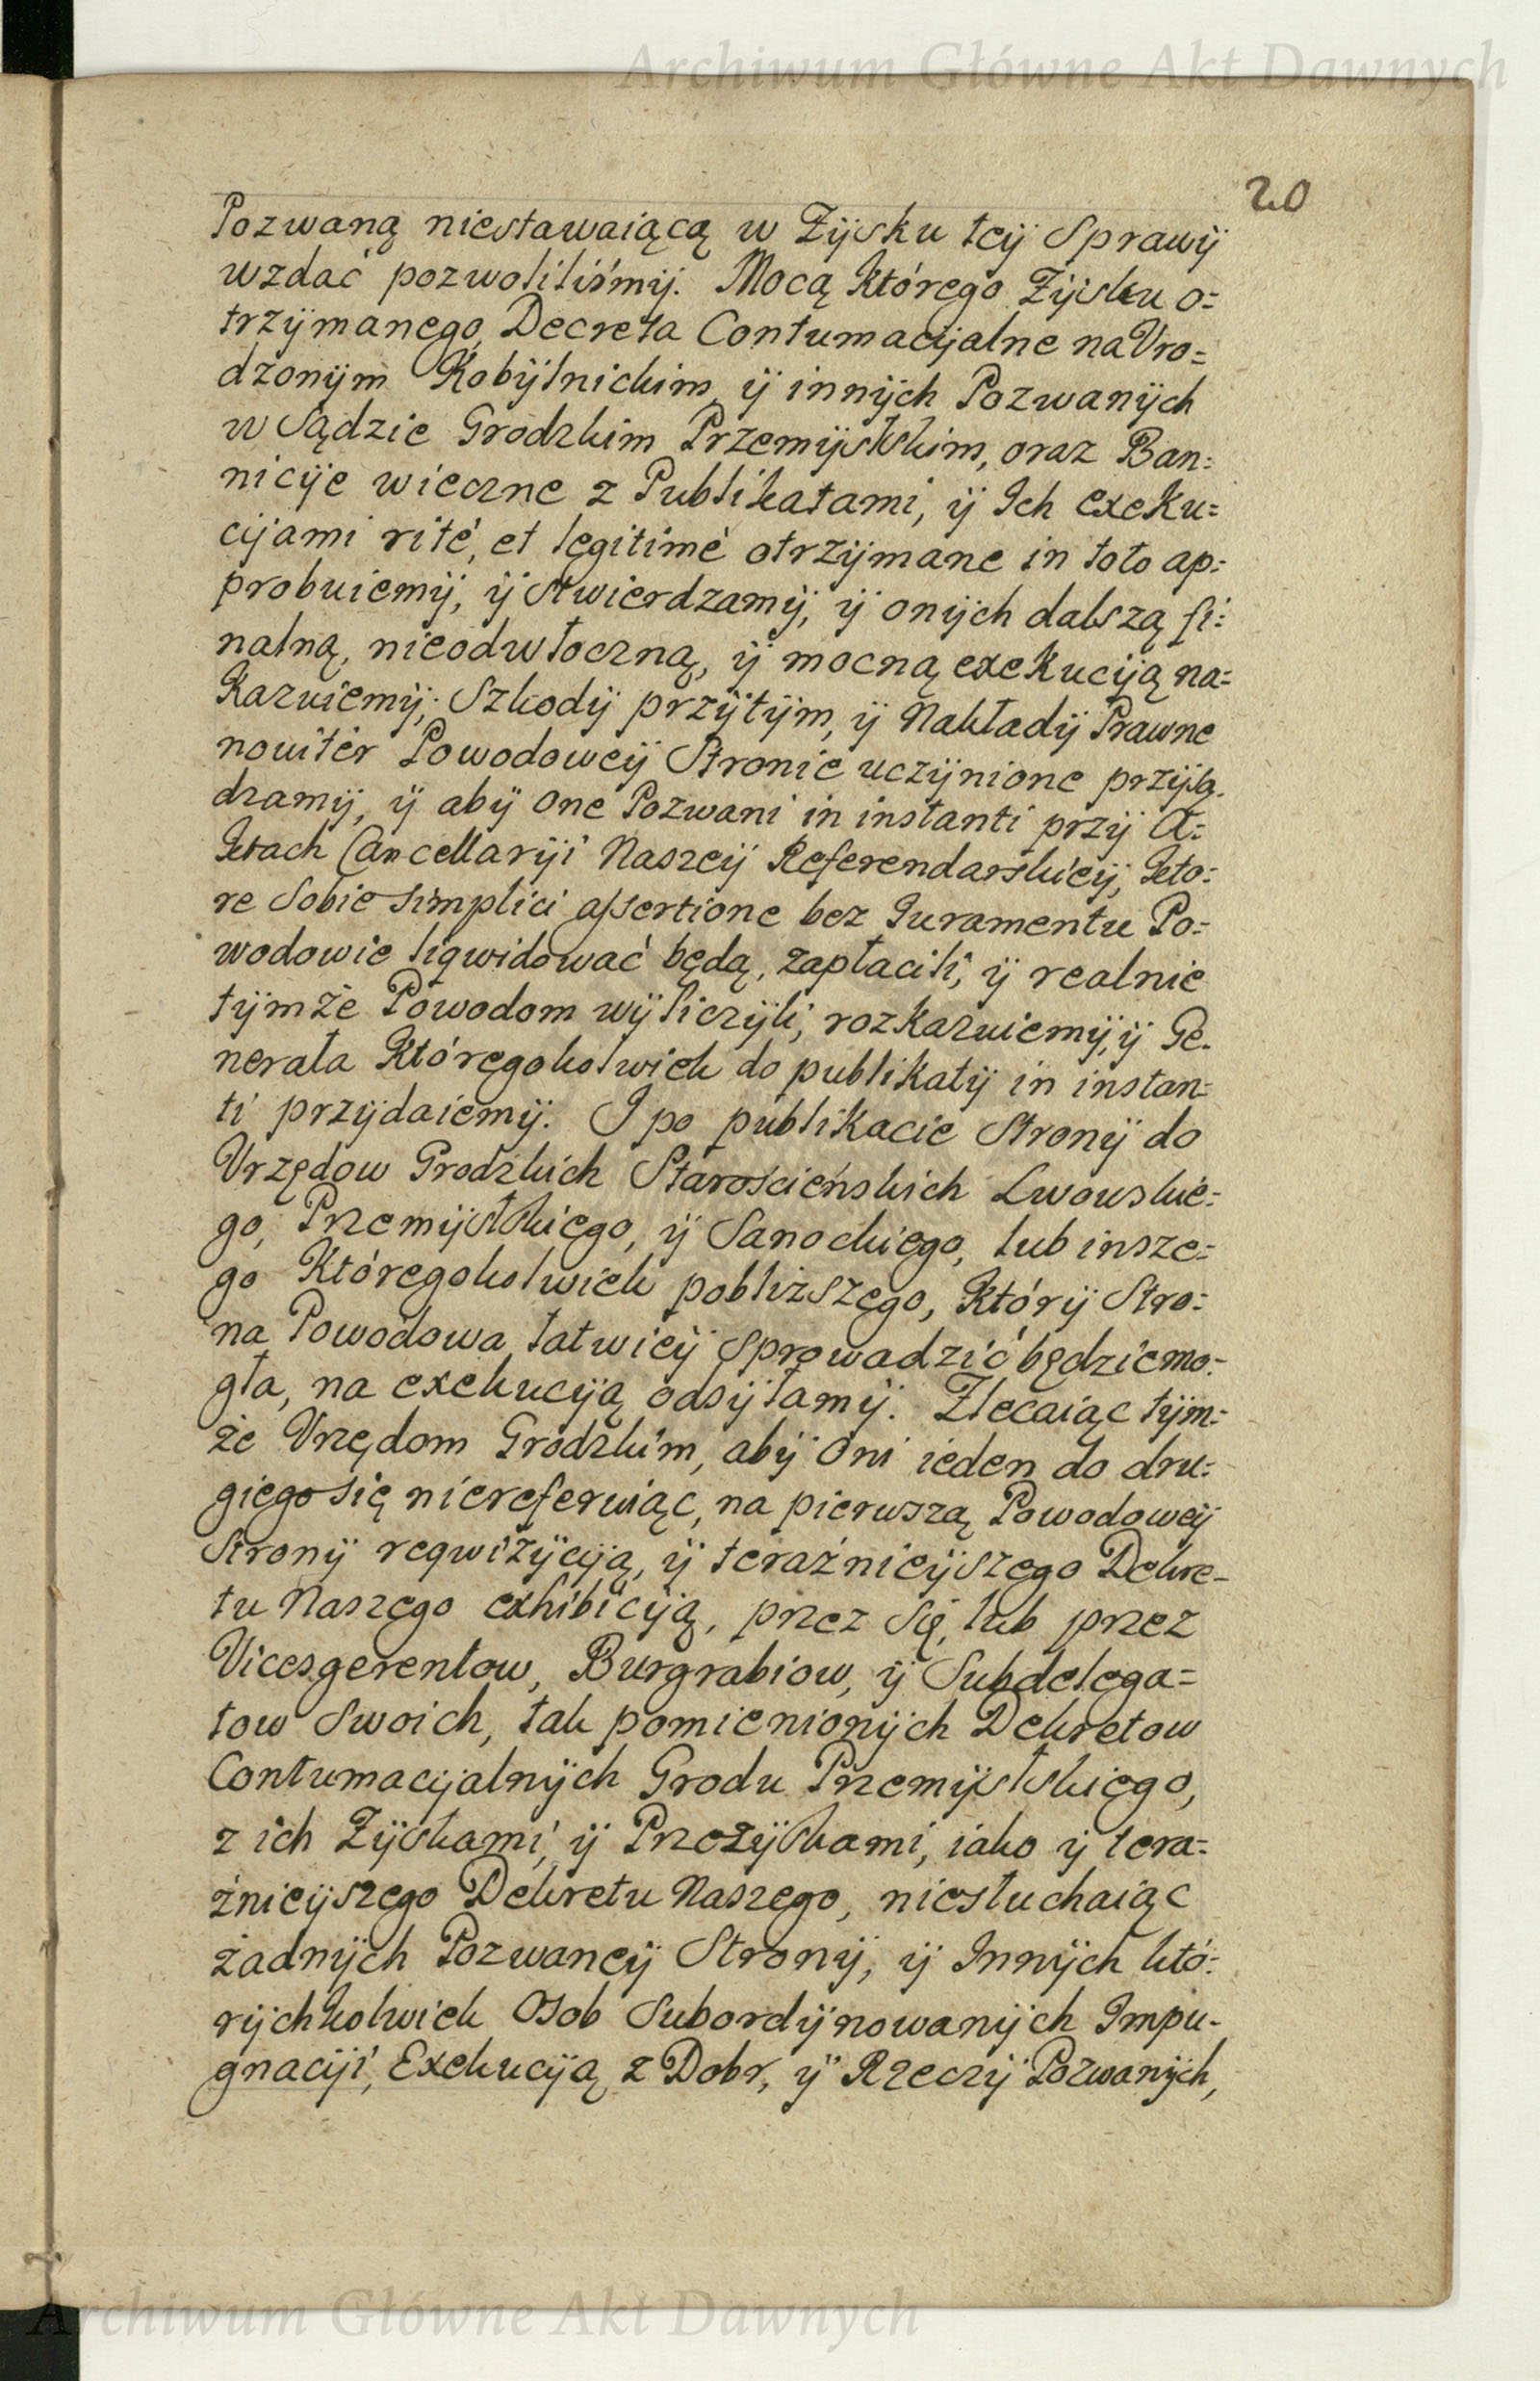 Archiwum Główne Akt Dawnych
20
Pozwaną niestawaiącą w Zÿsku teÿ Sprawÿ
wzdać pozwoliliśmÿ. Mocą Którego Zÿsku o=
trzÿmanego, Decreta Contumacÿalne na Uro=
dzonÿm Kobÿlnickim, ÿ innÿch Pozwanÿch
w Sądzie Grodzkim Przemÿslskim, oraz Ban=
nicÿe wieczne z Publikatami, ÿ Ich exeku=
cÿami rité, et legitimé otrzÿmane in toto ap=
probuiemÿ, ÿ stwierdzamÿ, ÿ onÿch dalszą fi=
nalną, nieodwłoczną, ÿ mocną exekucÿą na=
Kazuiemÿ; Szkodÿ przÿtÿm, ÿ Nakładÿ Prawne
noviter Powodoweÿ Stronie uczÿnione przÿsą=
dzamÿ, ÿ abÿ one Pozwani in instanti przÿ A=
ktach Cancellarÿi Naszeÿ Referendarskieÿ, kto=
re Sobie simplici assertione bez Juramentu Po=
wodowie liqwidować będą, zapłacili, ÿ realnie
tÿmże Powodom wÿliczÿli, rozkazuiemÿ, ÿ Ge=
nerała Któregokolwiek do publikatÿ in instan=
ti przÿdaiemÿ. I po publikacie Stronÿ do
Vrzędow Grodzkich Starościeńskich Lwowskie=
go, Przemÿslskiego, ÿ Sanockiego, lub insze=
go Któregokolwiek pobliższego, Którÿ Stro=
na Powodowa łatwieÿ Sprowadzić będzie mo=
gła, na exekucÿą odsÿłamÿ. Zlecaiąc tÿm=
że Vrzędom Grodzkim, abÿ Oni ieden do dru=
giego się niereferuiąc, na pierwszą Powodoweÿ
Stronÿ reqwizÿcÿą, ÿ teraźnieÿszego Dekre=
tu Naszego exhibicÿą, przez Się, lub przez
Vicesgerentow, Burgrabiow, ÿ Subdelega=
tow Swoich, tak pomienionÿch Dekretow
Contumacÿalnÿch Grodu Przemÿslskiego,
z ich Zÿskami, ÿ Przezÿskami, iako ÿ tera=
źnieÿszego Dekretu Naszego, niesłuchaiąc
żadnÿch Pozwaneÿ Stronÿ, ÿ Innÿch któ=
rÿchkolwiek Osob Subordÿnowanÿch Impu=
gnacÿi, Exekucÿą z Dobr, ÿ Rzeczÿ Pozwanÿch,
Archiwum Główne Akt Dawnych